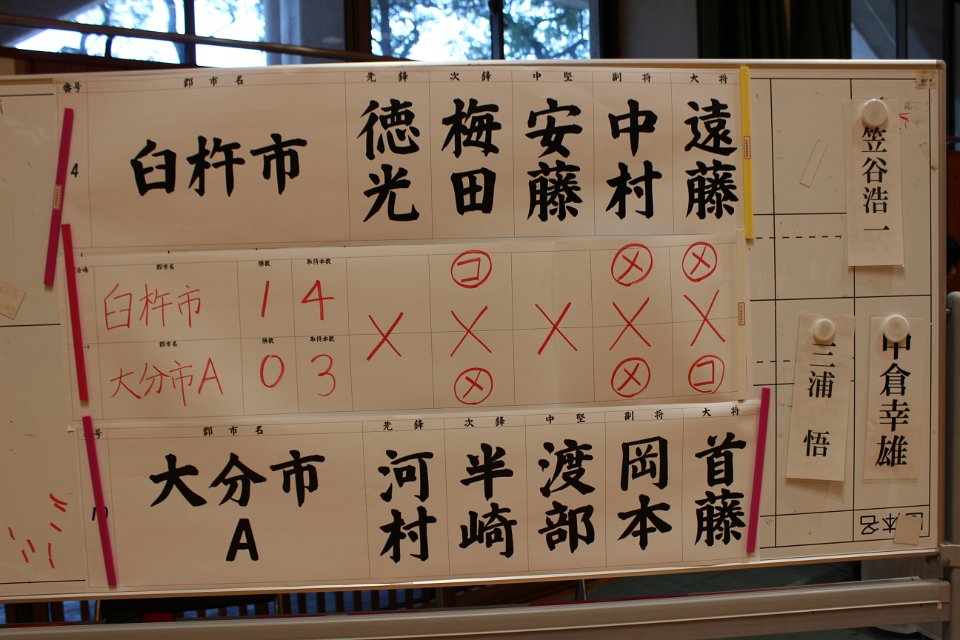 番号 郡市名 先鋒 次鋒 中堅 副将 大将
4 臼杵市 徳光 梅田 安藤 中村 遠藤
郡市名 勝数 取得本数
臼杵市 1 4 コ メ メ
郡市名 勝数 取得本数
大分市A 0 3 メ メ コ
号 郡市名 先鋒 次鋒 中堅 副将 大将
大分市A 河村 半崎 渡部 岡本 首藤
笠谷浩一
三浦 悟
中倉幸雄